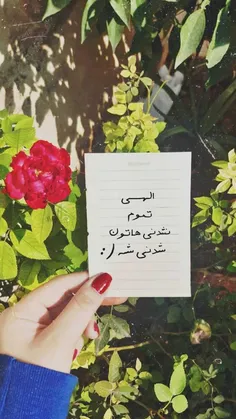 الهی
تموم
نشدنی هاتون
شدنی شه (: